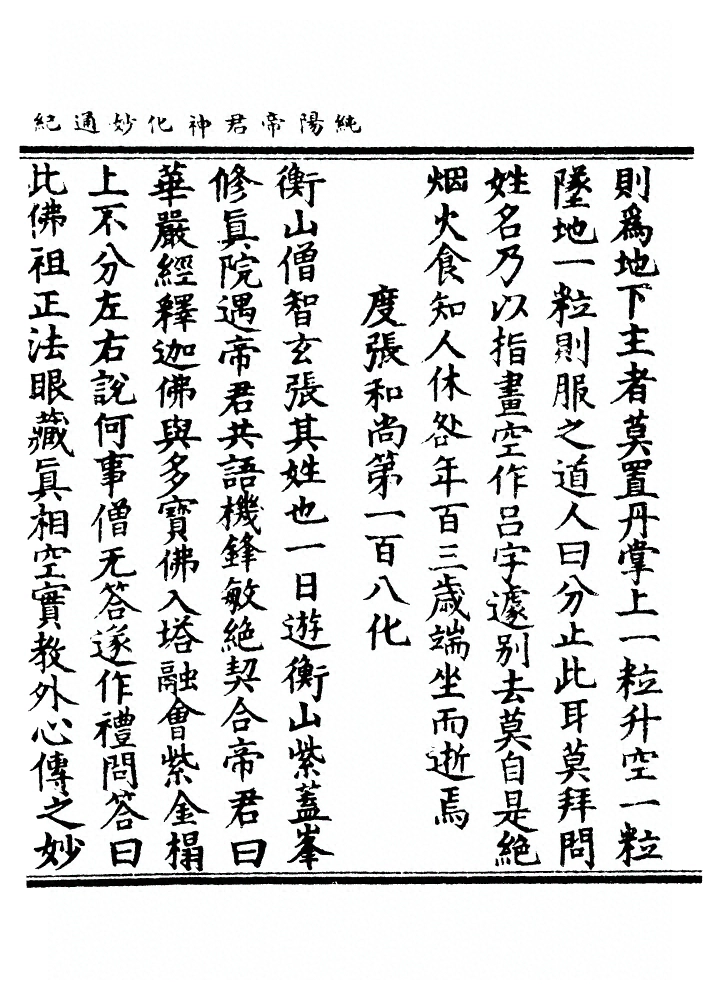 純陽帝君神化妙通紀
則爲地下主者莫置丹掌上一粒升空一粒
墜地一粒則服之道人曰分止此耳莫拜問
姓名乃以指畫空作吕字遽别去莫自是絶
烟火食知人休咎年百三歲端坐而逝焉
度張和尚第一百八化
衡山僧智玄張其姓也一日遊衡山紫蓋峯
修眞院遇帝君共語機鋒敏絶契合帝君曰
華嚴經釋迦佛與多寶佛入塔融會紫金榻
上不分左右說何事僧无答遂作禮問答曰
比佛祖正法眼藏眞相空實教外心傳之妙